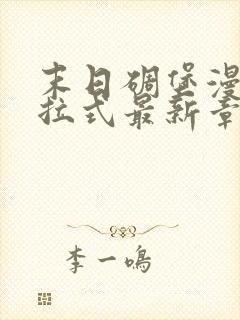 末日碉堡漫
拉式最新章
李一鸣